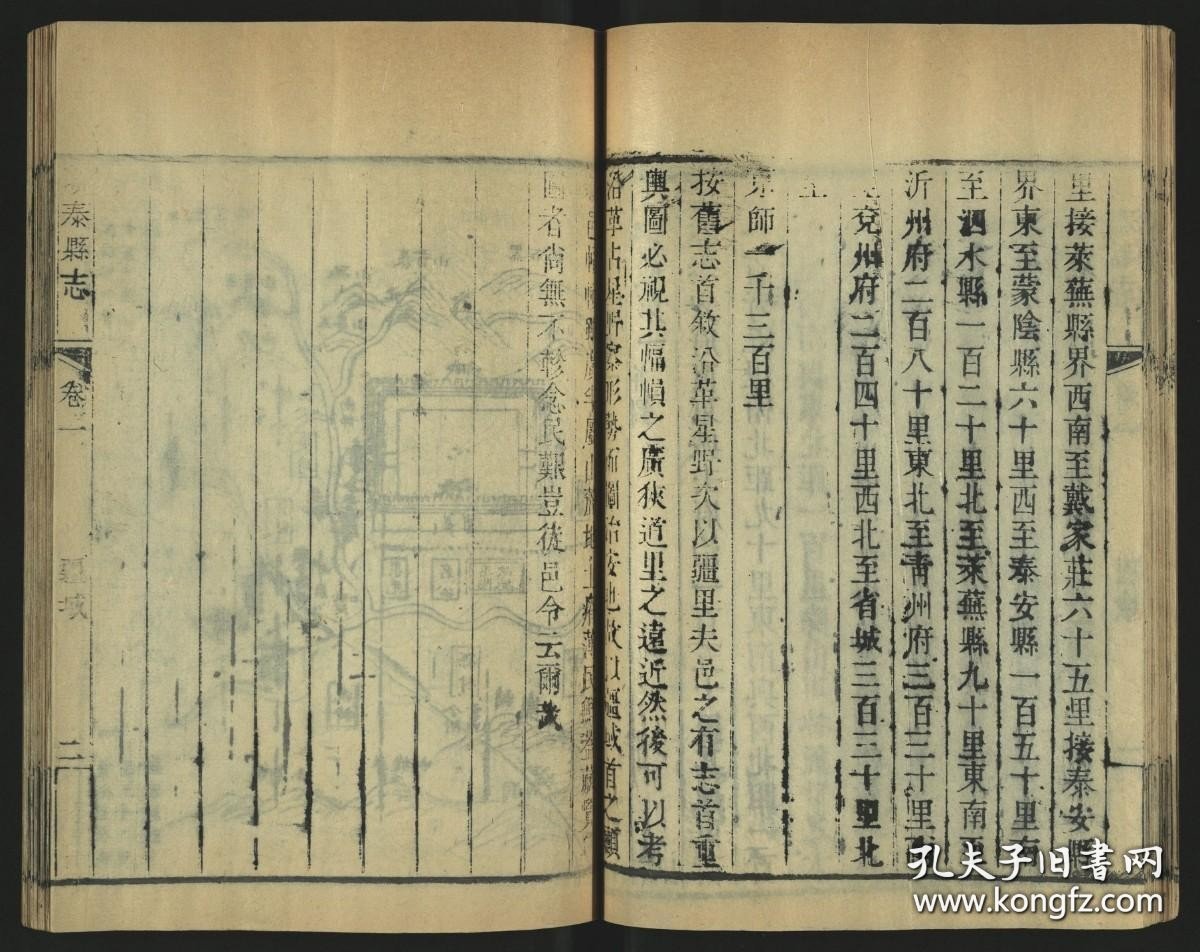 里接萊蕪縣界西南至戴家莊六十五里接泰安縣
界東至蒙陰縣六十里西至泰安縣一百五十里南
至泗水縣一百二十里北至萊蕪縣九十里東南至
沂州府二百八十里東北至青州府三百三十里西
兗州府二百四十里西北至省城三百三十里北
至
京師一千三百里
按舊志首敘沿革星野次以疆里夫邑之有志首重
輿圖必視其幅幀之廣狹道里之遠近然後可以考
沿革占星野察形勢 也故以疆域首之顧
圖者尚無不軫念民艱豈徒邑令云爾哉
泰縣志
卷一
疆域
二
孔夫子旧书网
www.kongfz.com